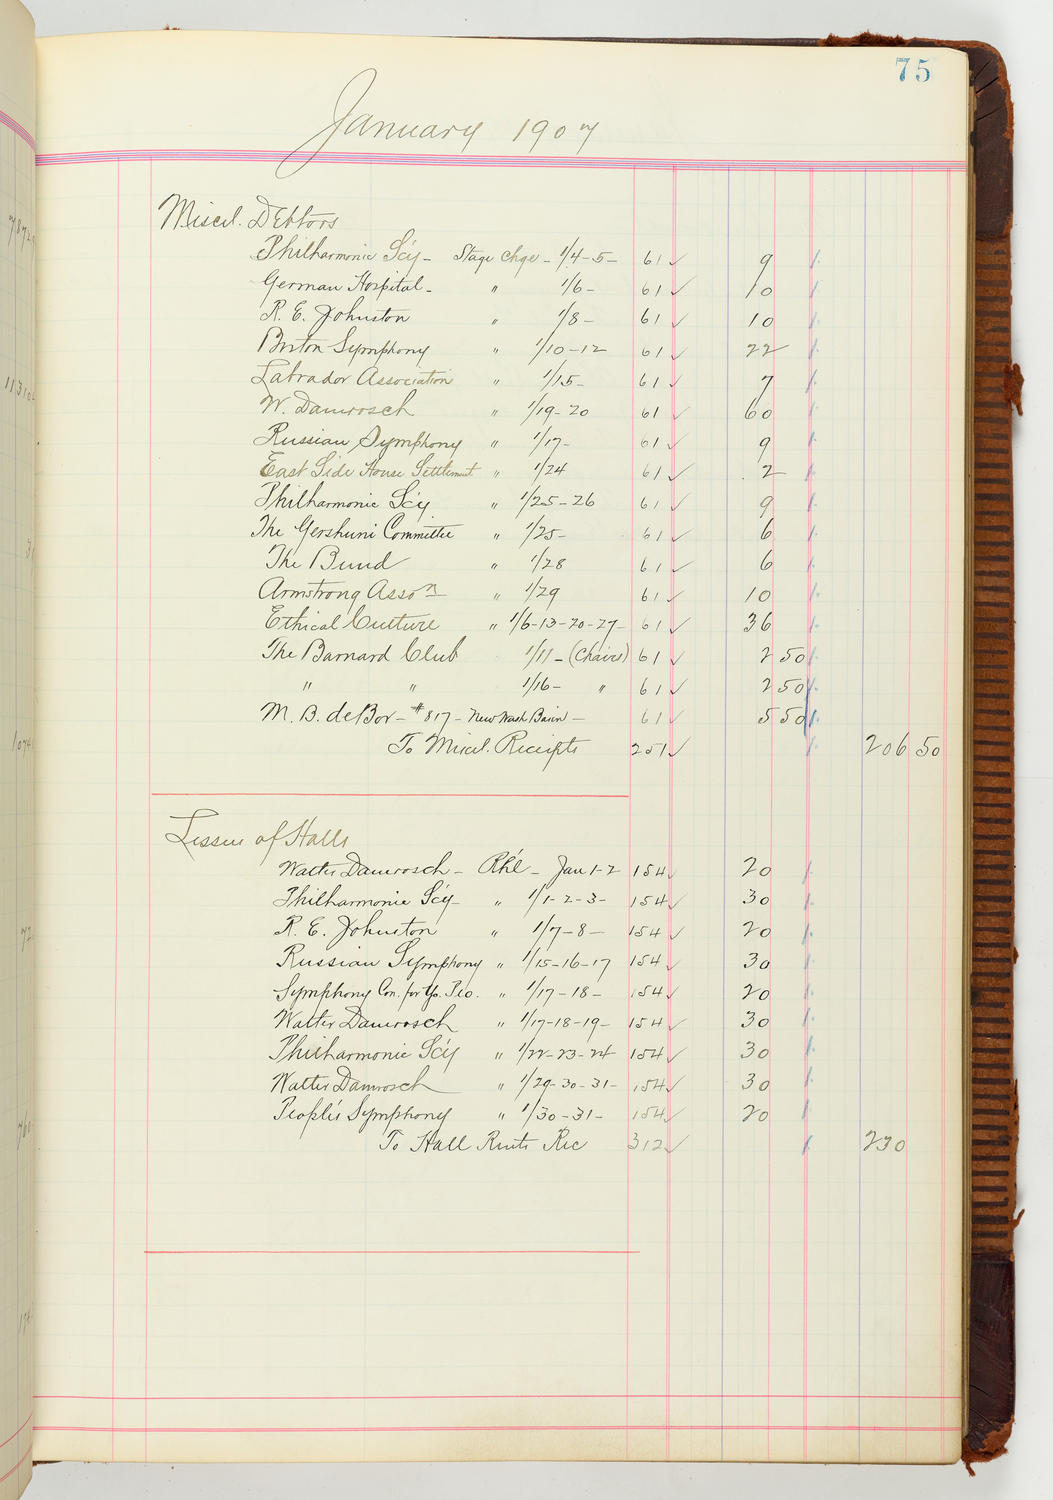 75
January 1907
Miscel. Debtors
Philharmonic Scy - Stage Chge - 1/4-5- 61 ✓ 9
German Hospital - " 1/6- 61 ✓ 10
R. E. Johnston " 1/8- 61 ✓ 10
Boston Symphony " 1/10-12 61 ✓ 22
Labrador Association " 1/15- 61 ✓ 7
W. Damrosch " 1/19-20 61 ✓ 60
Russian Symphony " 1/17- 61 ✓ 9
East Side House Settlement " 1/24 61 ✓ 2
Philharmonic Scy " 1/25-26 61 ✓ 9
The Gershuni Committee " 1/25- 61 ✓ 6
The Bund " 1/28 61 ✓ 6
Armstrong Asson " 1/29 61 ✓ 10
Ethical Culture " 1/6-13-20-27- 61 ✓ 36
The Barnard Club 1/11-(Chairs) 61 ✓ 2 50
" " 1/16- " 61 ✓ 2 50
M. B. deBor - #817 - New Wash Basin - 61 ✓ 5 50
To Miscel. Receipts 251 ✓ 206 50
Lessees of Halls
Walter Damrosch - Rhl - Jan 1-2 154 ✓ 20
Philharmonic Scy - " 1/1-2-3- 154 ✓ 30
R. E. Johnston " 1/7-8- 154 ✓ 20
Russian Symphony " 1/15-16-17 154 ✓ 30
Symphony Con. for Yo. Peo. " 1/17-18- 154 ✓ 20
Walter Damrosch " 1/17-18-19- 154 ✓ 30
Philharmonic Scy " 1/22-23-24 154 ✓ 30
Walter Damrosch " 1/29-30-31- 154 ✓ 30
People's Symphony " 1/30-31- 154 ✓ 20
To Hall Rents Rec 312 ✓ 230